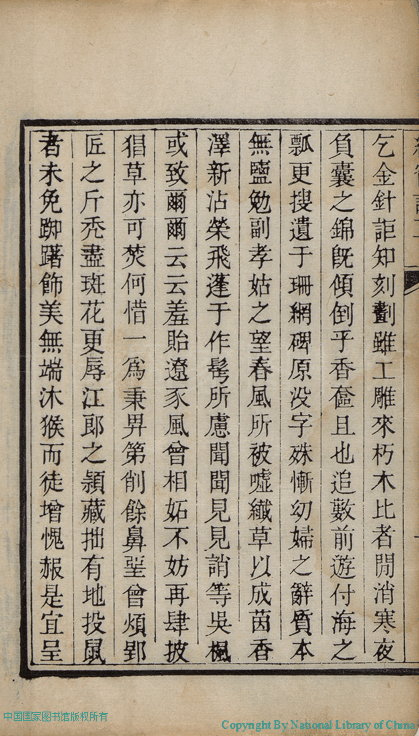 乞金針詎知刻劃雖工雕來朽木比者閒消寒夜
負囊之錦既傾倒乎香奩且也追數前遊付海之
瓢更搜遺于珊網碑原没字殊慚幼婦之辭質本
無鹽勉副孝姑之望春風所被噓纖草以成茵香
澤新沾榮飛蓬于作髩所慮聞聞見見誚等吳楓
或致爾爾云云羞貽遼豕風曾相妬不妨再肆披
猖草亦可焚何惜一為秉畀第削餘鼻堊曾煩郢
匠之斤禿盡斑花更辱江郎之頴藏拙有地投鼠
者未免踟躇飾美無端沐猴而徒增愧赧是宜呈
中国国家图书馆版权所有
Copyright By National Library of China